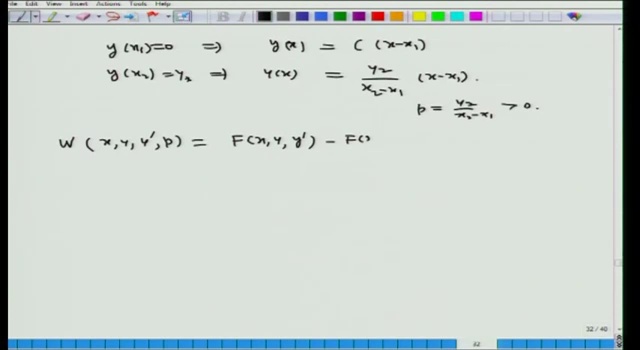 Edit View Insert Actions Tools Help
y(x₁)=0 ⇒ y(x) = C (x-x₁)
y(x₂)=y₂ ⇒ y(x) = y₂/(x₂-x₁) (x-x₁).
p = y₂/(x₂-x₁) > 0.
W (x, y, y', p) = F(x, y, y') - F(x
32 / 40
32